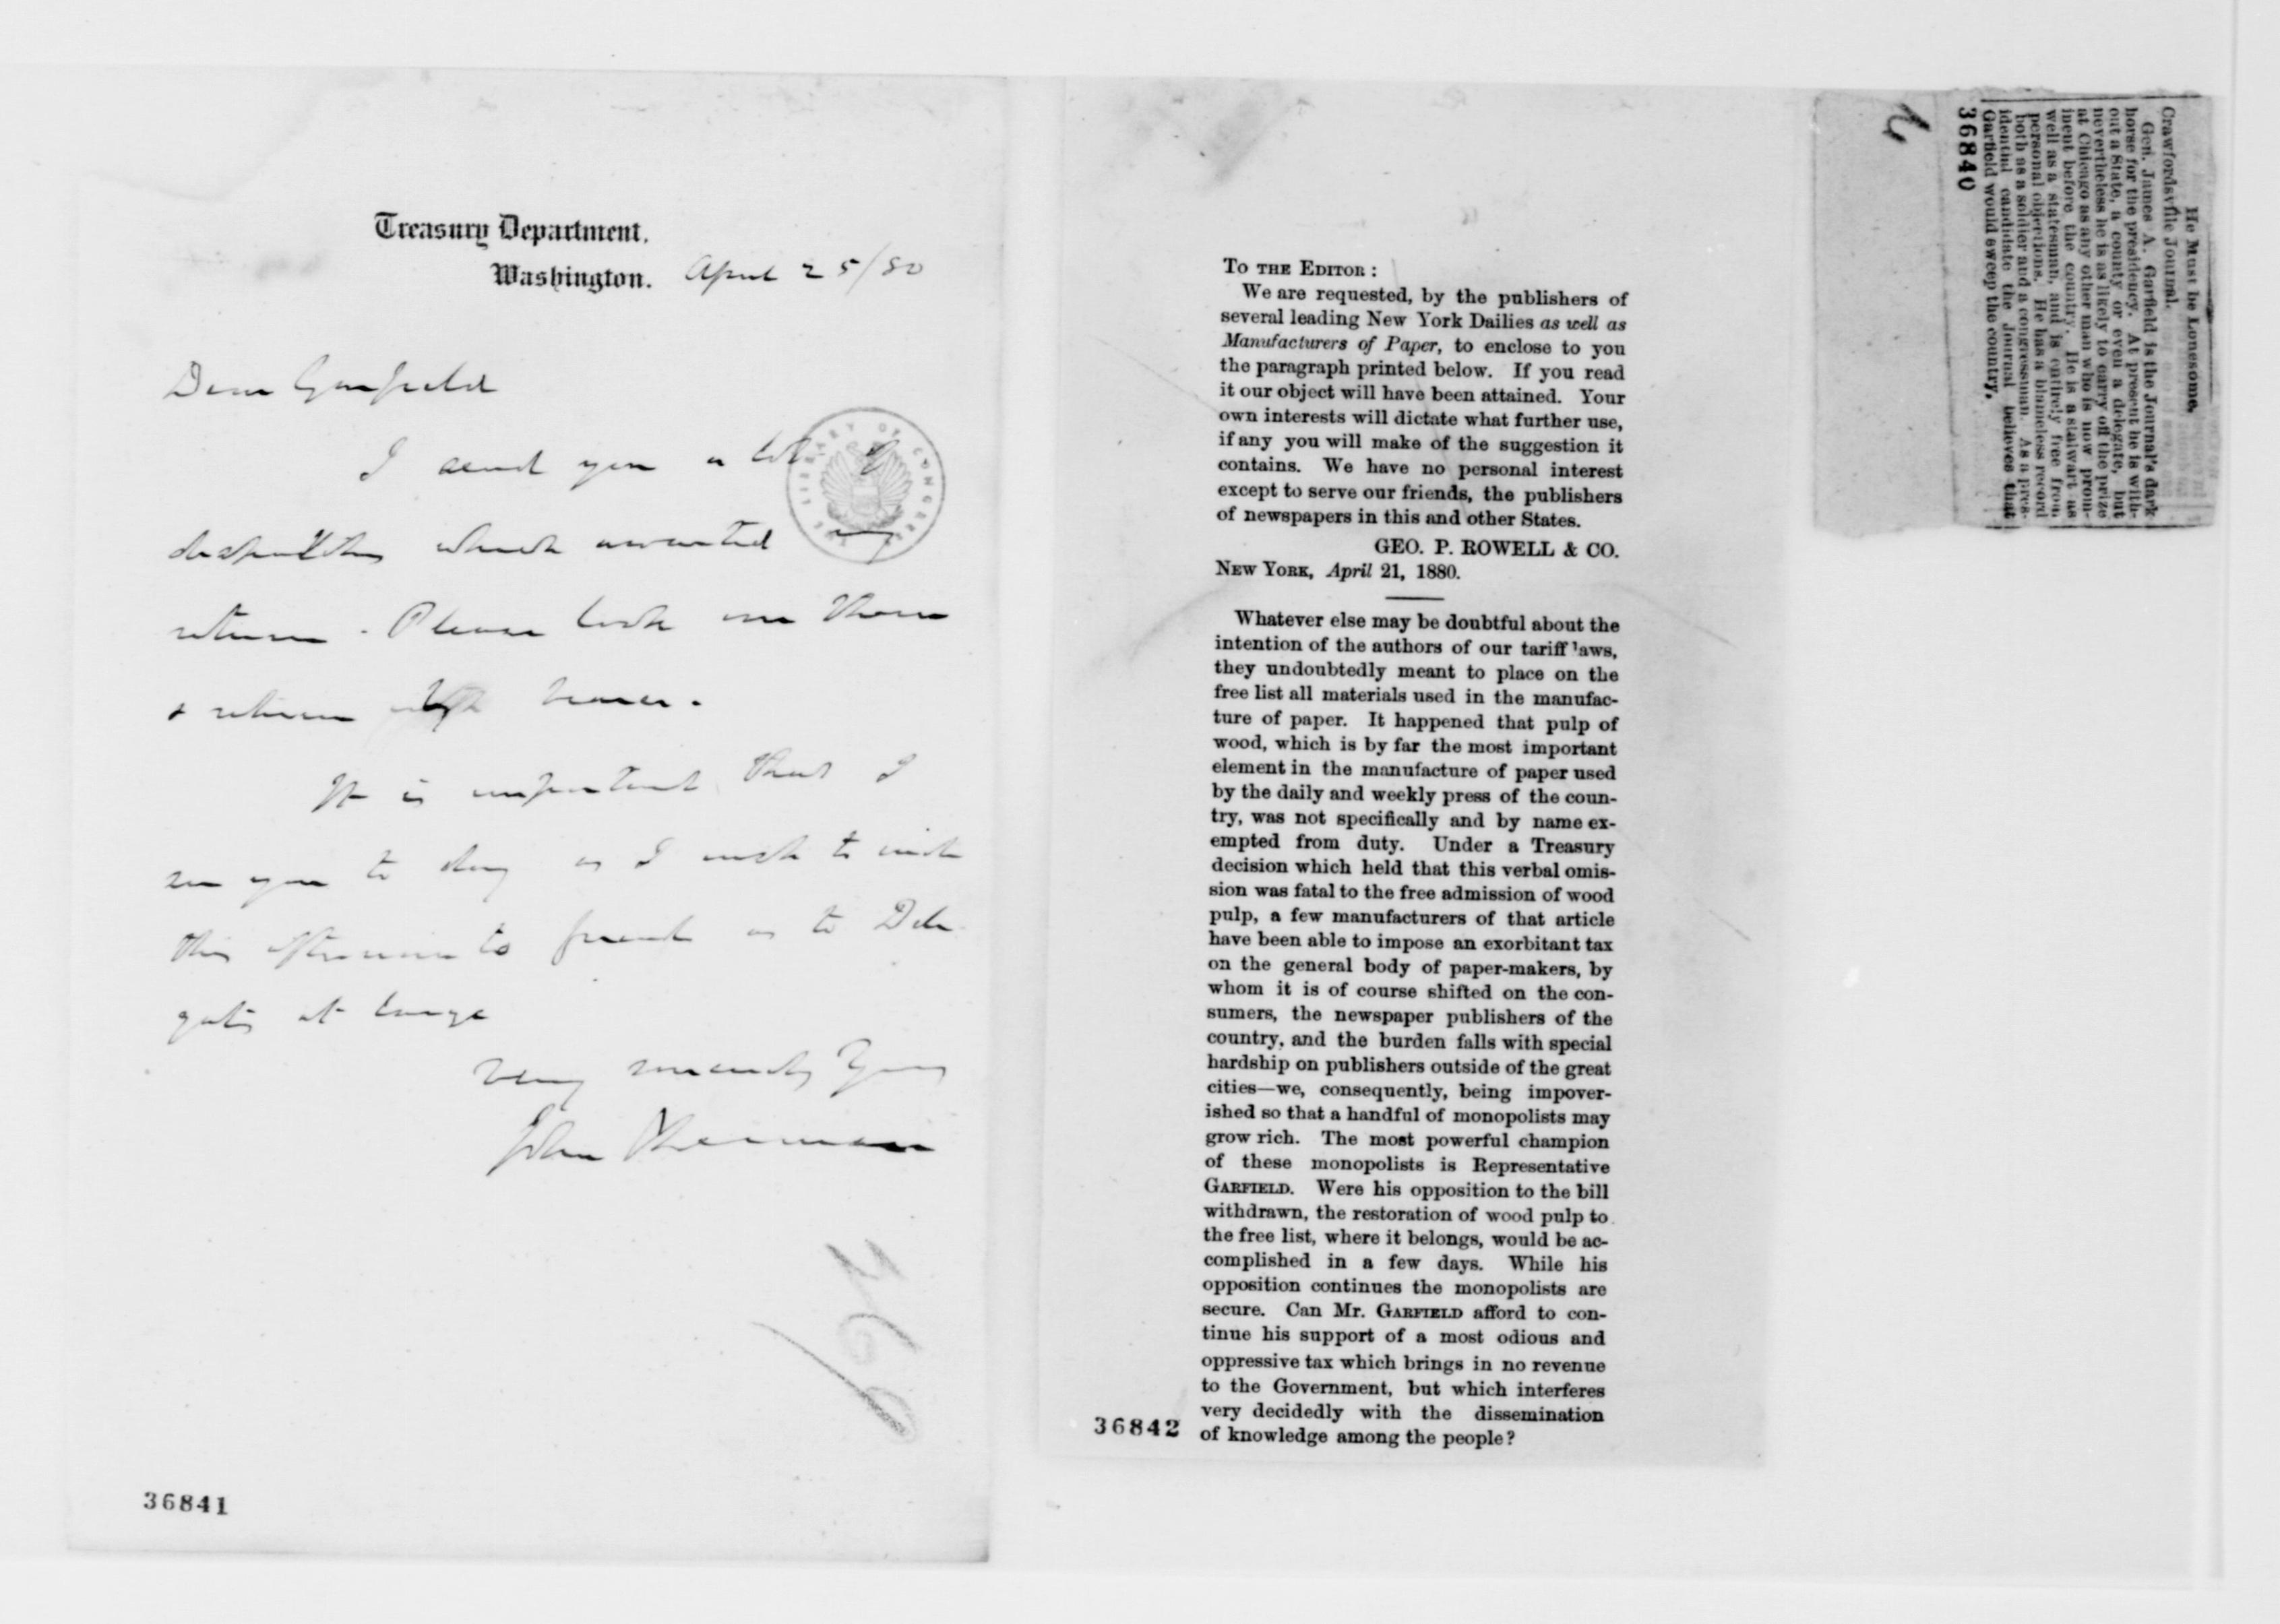 Treasury Department.
Washington. April 25/80
Dear Garfield
I send you a lot of
despatches which awaited my
return. Please look over them
& return with bearer.
It is important that I
see you to day as I wish to write
this afternoon to friends as to Dele-
gates at large
Very sincerely Yours
John Sherman
LIBRARY OF CONGRESS
369
36841
To the Editor:
We are requested, by the publishers of
several leading New York Dailies as well as
Manufacturers of Paper, to enclose to you
the paragraph printed below. If you read
it our object will have been attained. Your
own interests will dictate what further use,
if any you will make of the suggestion it
contains. We have no personal interest
except to serve our friends, the publishers
of newspapers in this and other States.
GEO. P. ROWELL & CO.
New York, April 21, 1880.
Whatever else may be doubtful about the
intention of the authors of our tariff laws,
they undoubtedly meant to place on the
free list all materials used in the manufac-
ture of paper. It happened that pulp of
wood, which is by far the most important
element in the manufacture of paper used
by the daily and weekly press of the coun-
try, was not specifically and by name ex-
empted from duty. Under a Treasury
decision which held that this verbal omis-
sion was fatal to the free admission of wood
pulp, a few manufacturers of that article
have been able to impose an exorbitant tax
on the general body of paper-makers, by
whom it is of course shifted on the con-
sumers, the newspaper publishers of the
country, and the burden falls with special
hardship on publishers outside of the great
cities—we, consequently, being impover-
ished so that a handful of monopolists may
grow rich. The most powerful champion
of these monopolists is Representative
Garfield. Were his opposition to the bill
withdrawn, the restoration of wood pulp to
the free list, where it belongs, would be ac-
complished in a few days. While his
opposition continues the monopolists are
secure. Can Mr. Garfield afford to con-
tinue his support of a most odious and
oppressive tax which brings in no revenue
to the Government, but which interferes
very decidedly with the dissemination
of knowledge among the people?
36842
He Must be Lonesome.
Crawfordsville Journal.
Gen. James A. Garfield is the Journal's dark
horse for the presidency. At present he is with-
out a State, a county or even a delegate, but
nevertheless he is as likely to carry off the prize
at Chicago as any other man who is now prom-
inent before the country. He is a stalwart as
well as a statesman, and is entirely free from
personal objections. He has a blameless record
both as a soldier and a congressman. As a pres-
idential candidate the Journal believes that
Garfield would sweep the country.
36840